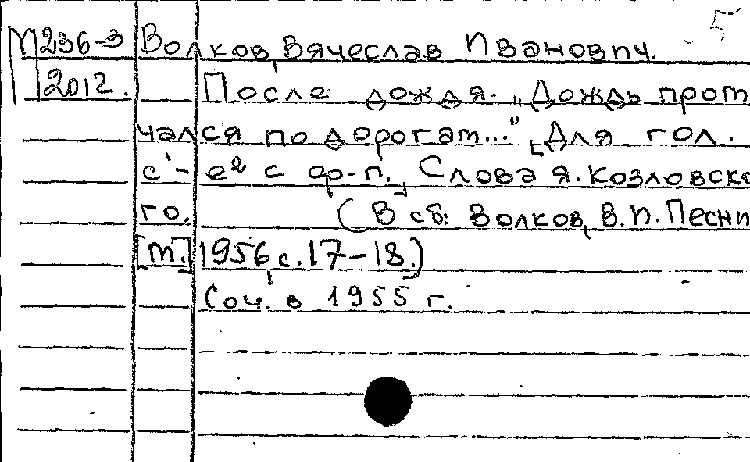 М236-3 Волков, Вячеслав Иванович. 5
2012. После дождя. "Дождь прот
чался по дорогам..." [Для гол.
с¹-е² с ф-п.] Слова Я. Козловско
го. (В сб: Волков, В.И. Песни
[М.] 1956, с. 17-18.)
Соч. в 1955 г.